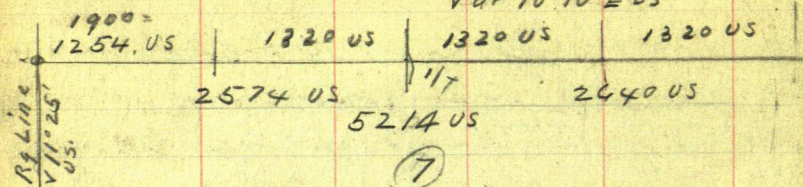 1900=
1254. US 1320 US 1320 US 1320 US
1/7
2574 US 2640 US
5214 US
7
Rg Line
V 11° 25'
US.